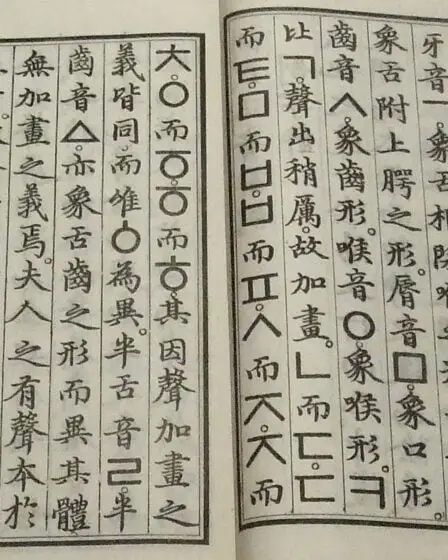 牙音ㄱ。象舌根
象舌附上腭之形。脣音ㅁ。象口形。
齒音ㅅ。象齒形。喉音ㅇ。象喉形。ㅋ
比ㄱ。聲出稍厲。故加畫。ㄴ而ㄷ。ㄷ
而ㅌ。ㅁ而ㅂ。ㅂ而ㅍ。ㅅ而ㅈ。ㅈ而
ㅊ。ㅇ而ㆆ。ㆆ而ㅎ。其因聲加畫之
義皆同。而唯ㆁ為異。半舌音ㄹ。半
齒音ㅿ。亦象舌齒之形而異其體。
無加畫之義焉。夫人之有聲本於